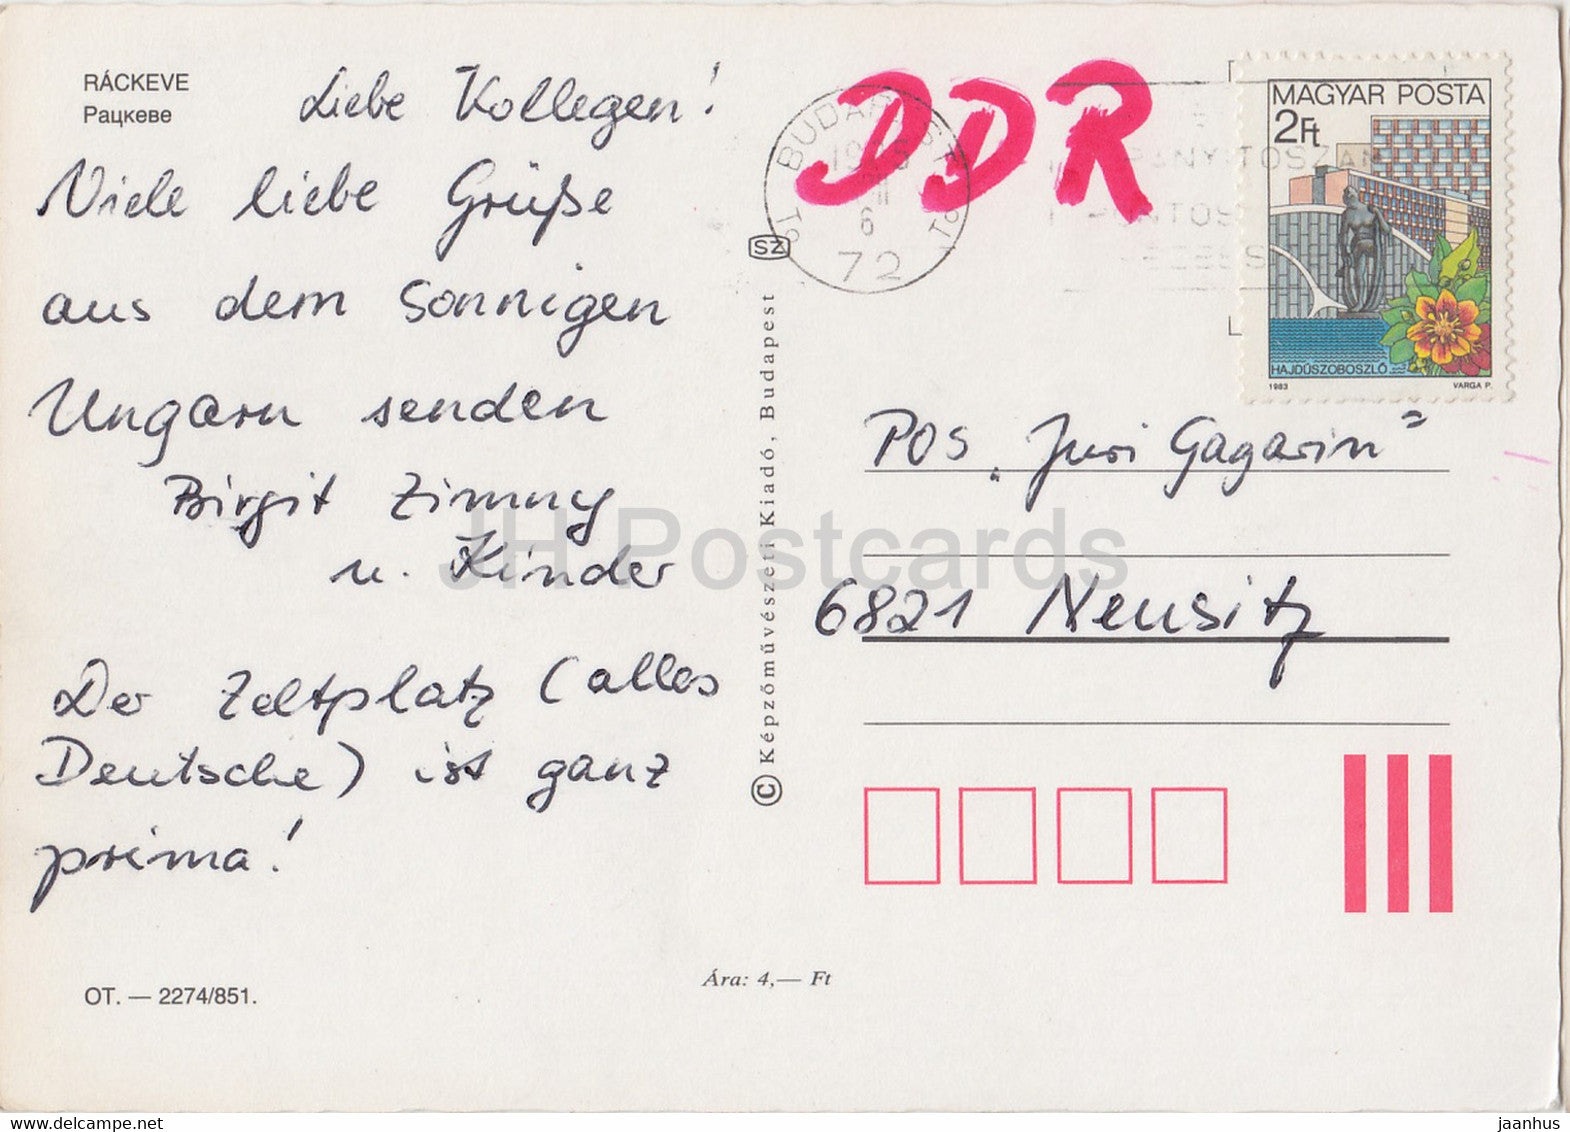 RÁCKEVE
Рацкеве
Liebe Kollegen!
Viele liebe Grüße
aus dem sonnigen
Ungarn senden
Birgit Zimny
u. Kinder
Der Zeltplatz (alles
Deutsche) ist ganz
prima!
OT. — 2274/851.
Ára: 4,— Ft
SZ
© Képzőművészeti Kiadó, Budapest
DDR
BUDAPEST
72
MAGYAR POSTA
2Ft
HAJDÚSZOBOSZLÓ
1983 VARGA P.
POS „Juri Gagarin"
6821 Neusitz
JH Postcards
www.delcampe.net
jaanhus